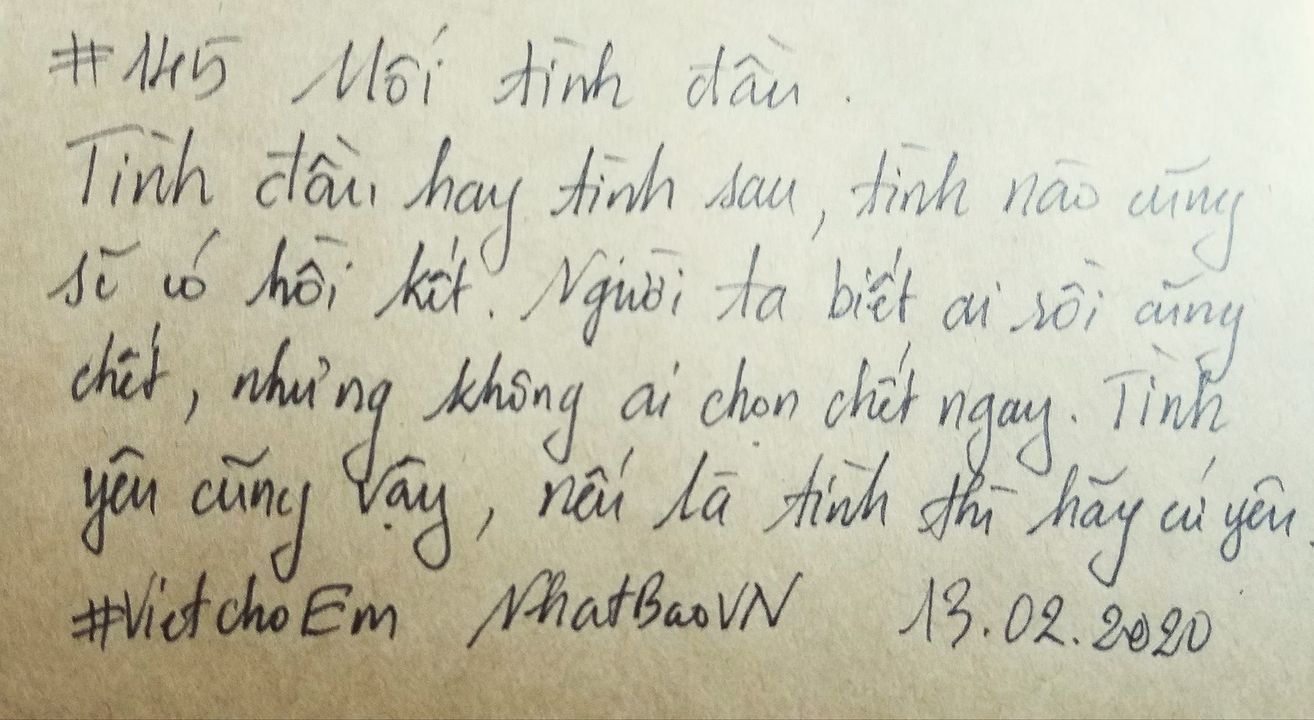 #145 Mối tình đầu.
Tình đầu hay tình sau, tình nào cũng
sẽ có hồi kết. Người ta biết ai rồi cũng
chết, nhưng không ai chọn chết ngay. Tình
yêu cũng vậy, nếu là tình thì hãy cứ yêu.
#VietchoEm NhatBaoVN 13.02.2020